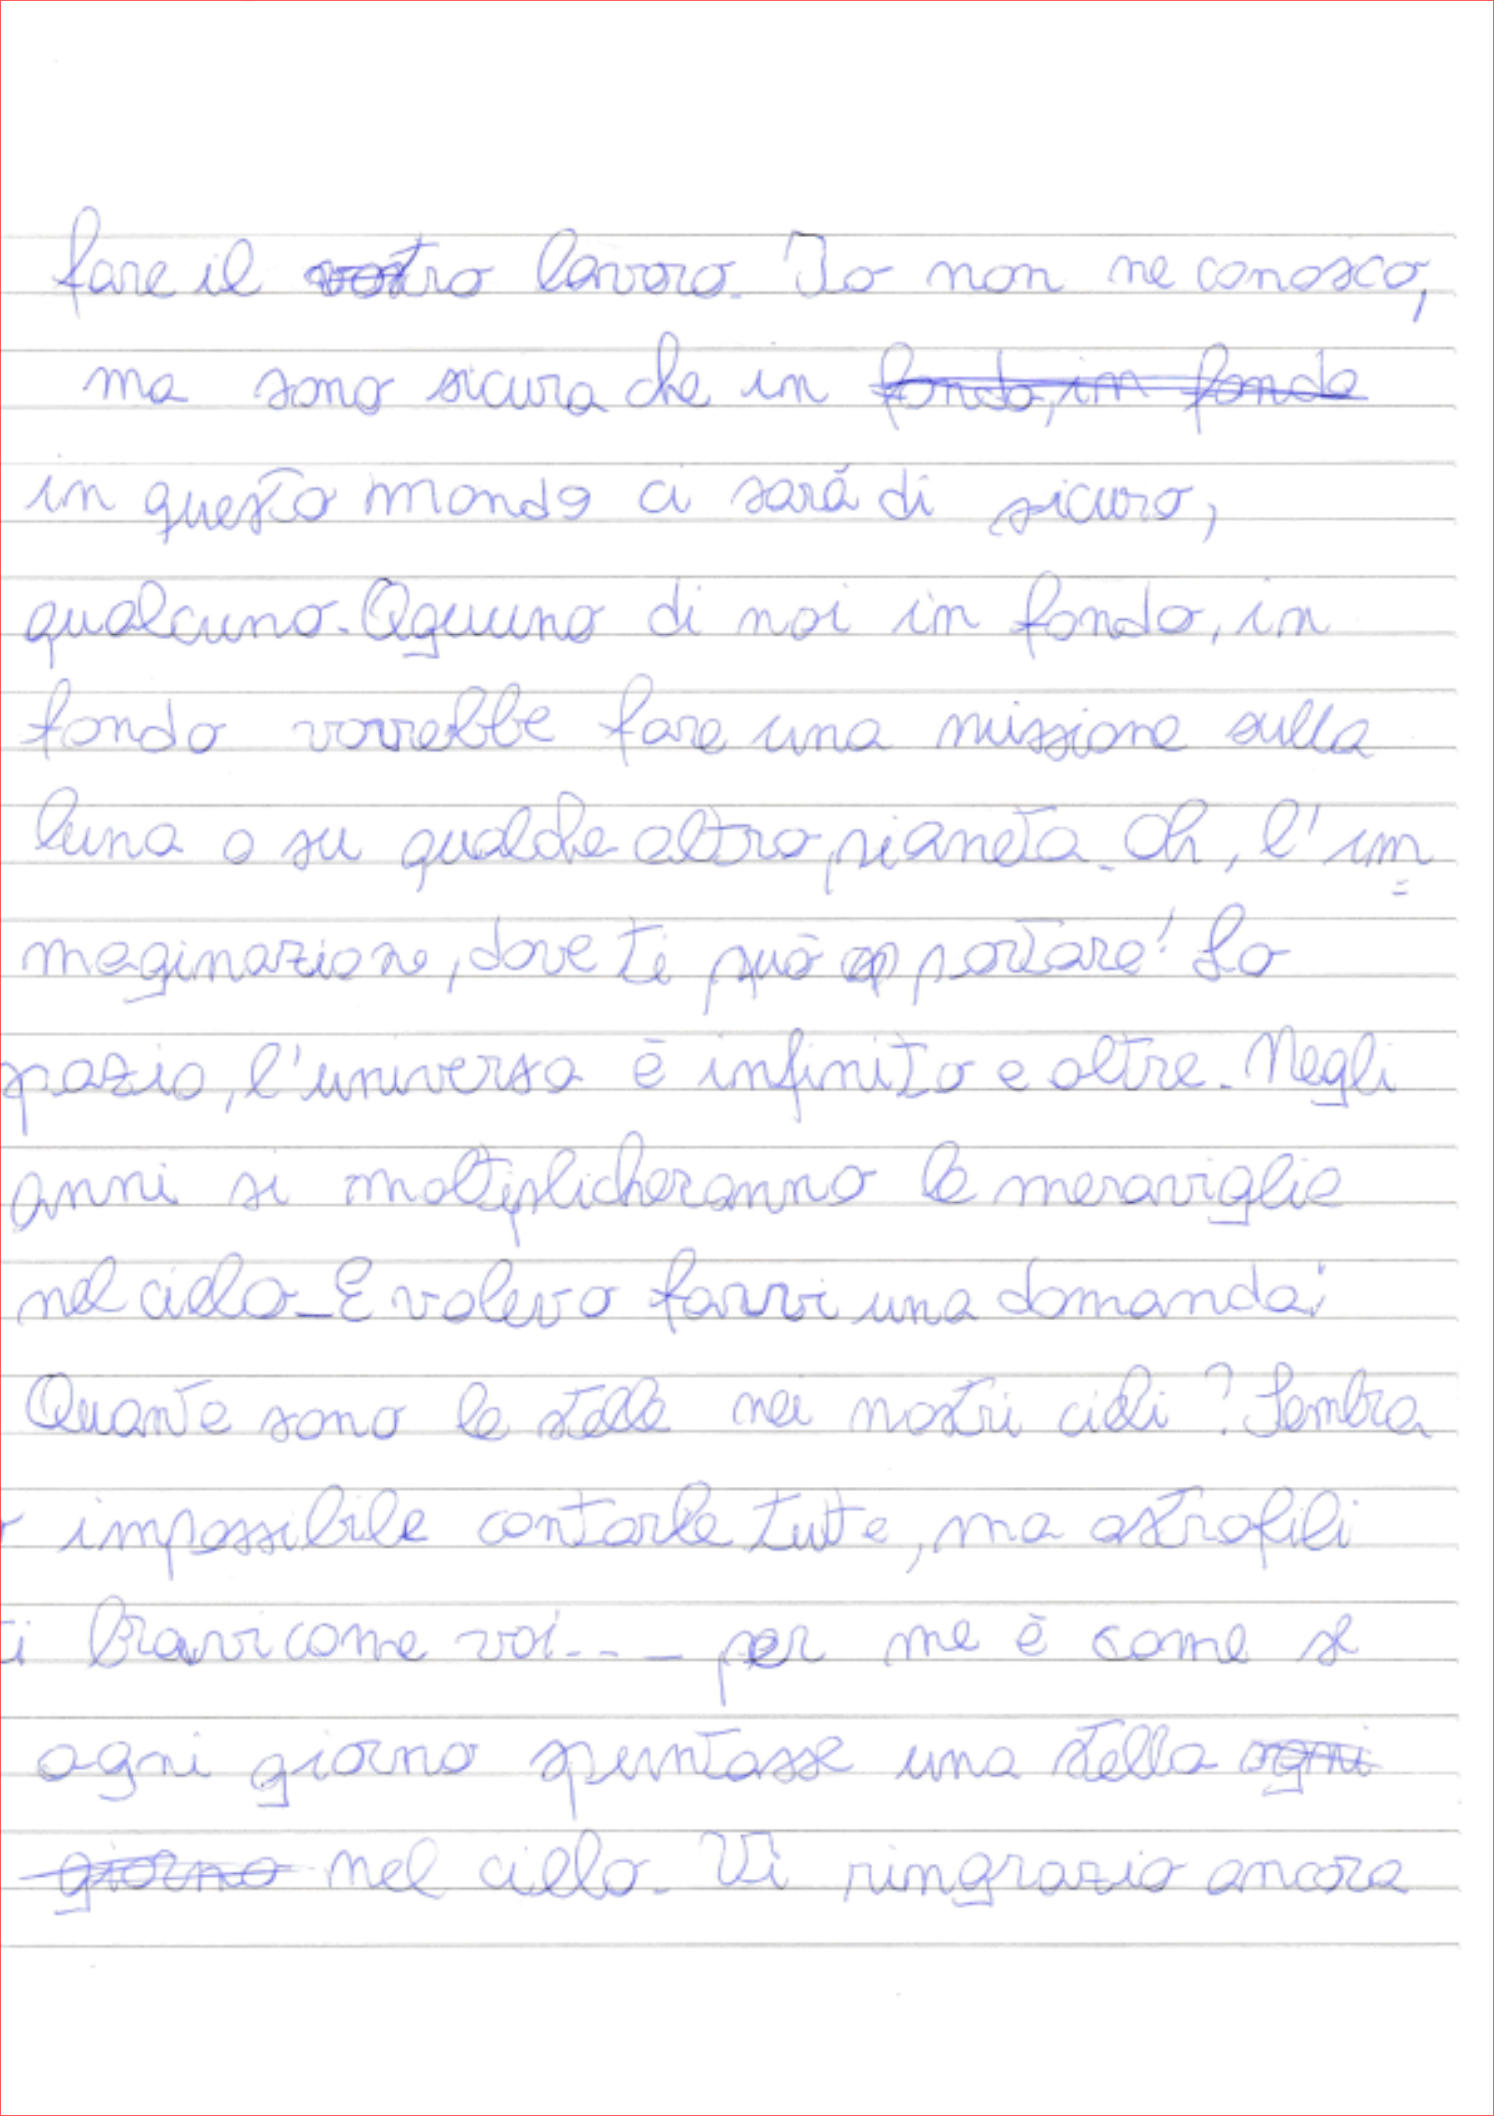 fare il vostro lavoro. Io non ne conosco,
ma sono sicura che in fondo, in fondo
in questo mondo ci sará di sicuro,
qualcuno. Ognuno di noi in fondo, in
fondo vorrebbe fare una missione sulla
luna o su qualche altro pianeta. Oh, l'im
maginazione, dove ti può portare! Lo
spazio, l'universo è infinito e oltre. Negli
anni si moltiplicheranno le meraviglie
nel cielo. E volevo farvi una domanda:
Quante sono le stelle nei nostri cieli? Sembra
impossibile contarle tutte, ma astrofili
bravi come voi... per me è come se
ogni giorno spuntasse una stella ogni
giorno nel cielo. Vi ringrazio ancora